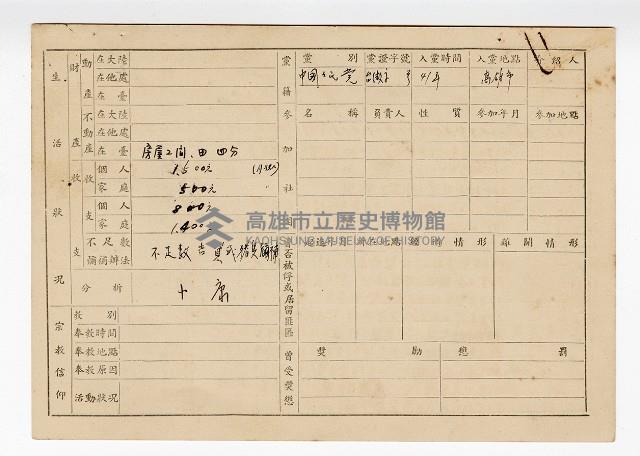 生活狀況
財產
動產
在大陸
在他處
在臺
不動產
在大陸
在他處
在臺
房屋2間、田四分
收支
收
個人
1,500元
家庭
500元
支
個人
800元
家庭
1,400元
不足數彌補辦法
不足數
分析
小康
宗教信仰
教別
奉教時間
奉教地點
奉教原因
活動狀況
黨籍
黨別
黨證字號
入黨時間
入黨地點
介紹人
中國國民黨
41年
高雄市
參加社團
名稱
負責人
性質
參加年月
參加地點
曾否被俘或居留匪區
情形
離開情形
曾受獎懲
獎勵
懲罰
高雄市立歷史博物館
KAOHSIUNG MUSEUM OF HISTORY